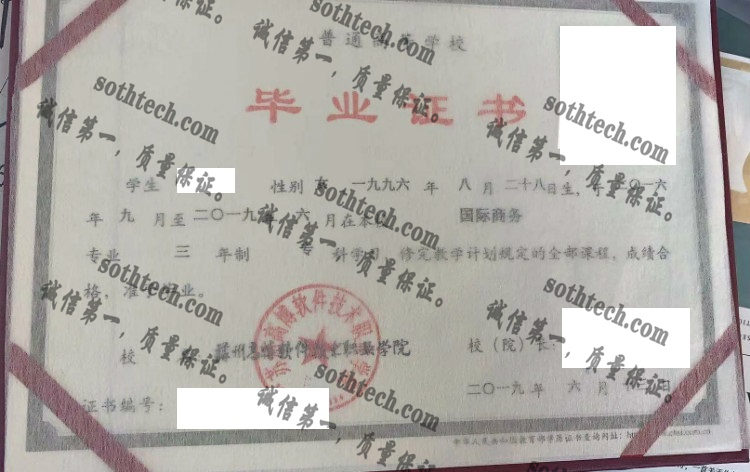 普通高等学校
毕业证书
学生 性别 一九九六年八月二十八日生，于二〇一六
年九月至二〇一九年六月在本 国际商务
专业 三年制 科学习，修完教学计划规定的全部课程，成绩合
格，准予毕业。
校 软件 职业学院 校（院）长：
二〇一九年六月 日
证书编号：
中华人民共和国教育部学历证书查询网址：
sothtech.com
诚信第一，质量保证。
sothtech.com
诚信第一，质量保证。
sothtech.com
诚信第一，质量保证。
sothtech.com
诚信第一，质量保证。
sothtech.com
诚信第一，质量保证。
sothtech.com
诚信第一，质量保证。
sothtech.com
诚信第一，质量保证。
sothtech.com
诚信第一，质量保证。
sothtech.com
诚信第一，质量保证。